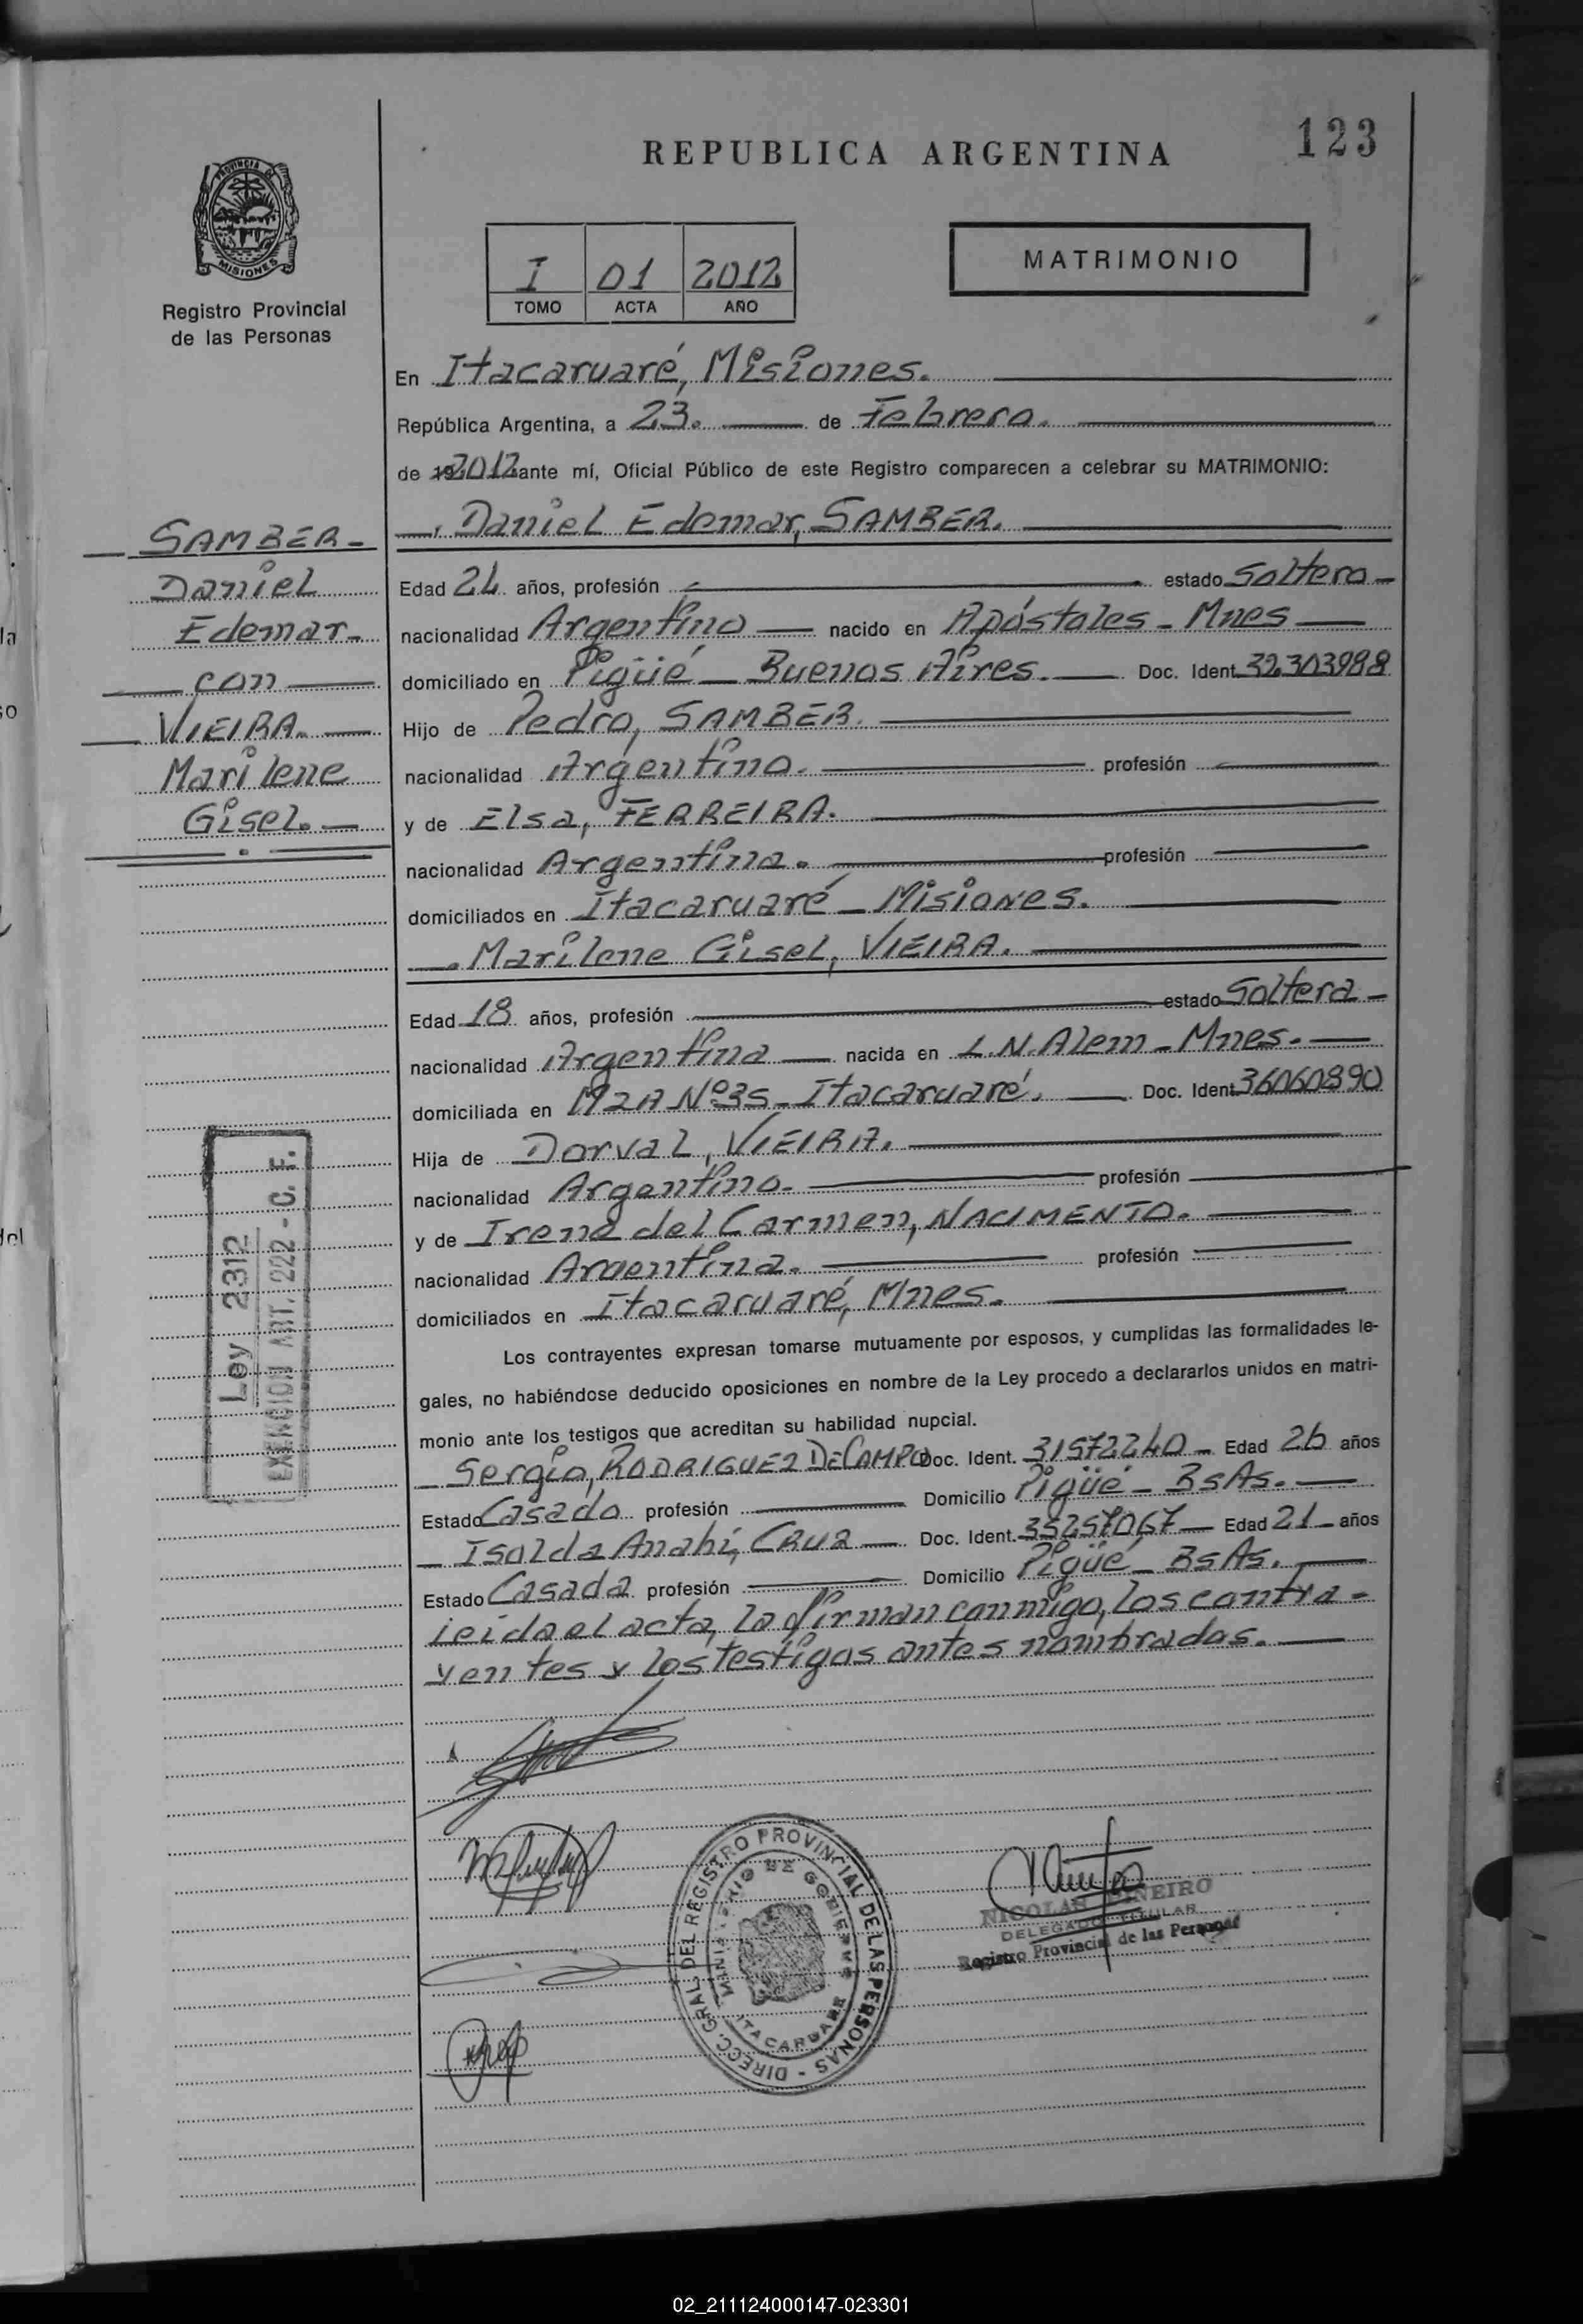 123
REPUBLICA ARGENTINA
PROVINCIA DE
MISIONES
Registro Provincial
de las Personas
I 01 2012
TOMO ACTA AÑO
MATRIMONIO
En Itacaruaré, Misiones.
República Argentina, a 23. de Febrero.
de 192012 ante mí, Oficial Público de este Registro comparecen a celebrar su MATRIMONIO:
Daniel Edemar, SAMBER.
SAMBER
Daniel
Edemar
con
VIEIRA.
Marilene
Gisel.
Edad 24 años, profesión estado Soltero
nacionalidad Argentino nacido en Apóstoles - Mnes
domiciliado en Pigüé - Buenos Aires. Doc. Ident. 32303988
Hijo de Pedro, SAMBER.
nacionalidad Argentino. profesión
y de Elsa, FERREIRA.
nacionalidad Argentina. profesión
domiciliados en Itacaruaré - Misiones.
Marilene Gisel, VIEIRA.
Edad 18 años, profesión estado Soltera
nacionalidad Argentina nacida en L.N.Alem - Mnes.
domiciliada en Mza Nº35 - Itacaruaré. Doc. Ident. 36060890
Hija de Dorval, VIEIRA.
nacionalidad Argentino. profesión
y de Irena del Carmen, NACIMENTO.
nacionalidad Argentina. profesión
domiciliados en Itacaruaré, Mnes.
Ley 2312
EXENCION ART. 222 - C. F.
Los contrayentes expresan tomarse mutuamente por esposos, y cumplidas las formalidades le-
gales, no habiéndose deducido oposiciones en nombre de la Ley procedo a declararlos unidos en matri-
monio ante los testigos que acreditan su habilidad nupcial.
Sergio, RODRIGUEZ DECAMPO Doc. Ident. 31572240 - Edad 26 años
Estado Casado profesión Domicilio Pigüé - BsAs.
Isolda Anahí, CRUZ Doc. Ident. 35257067 Edad 21 años
Estado Casada profesión Domicilio Pigüé - BsAs.
leida el acta, la firman conmigo, los contra-
yentes y los testigos antes nombrados.
DIRECC. GRAL DEL REGISTRO PROVINCIAL DE LAS PERSONAS
MINISTERIO DE GOBIERNO
ITACARUARE
NICOLAS PINEIRO
DELEGADO TITULAR
Registro Provincial de las Personas
02_211124000147-023301